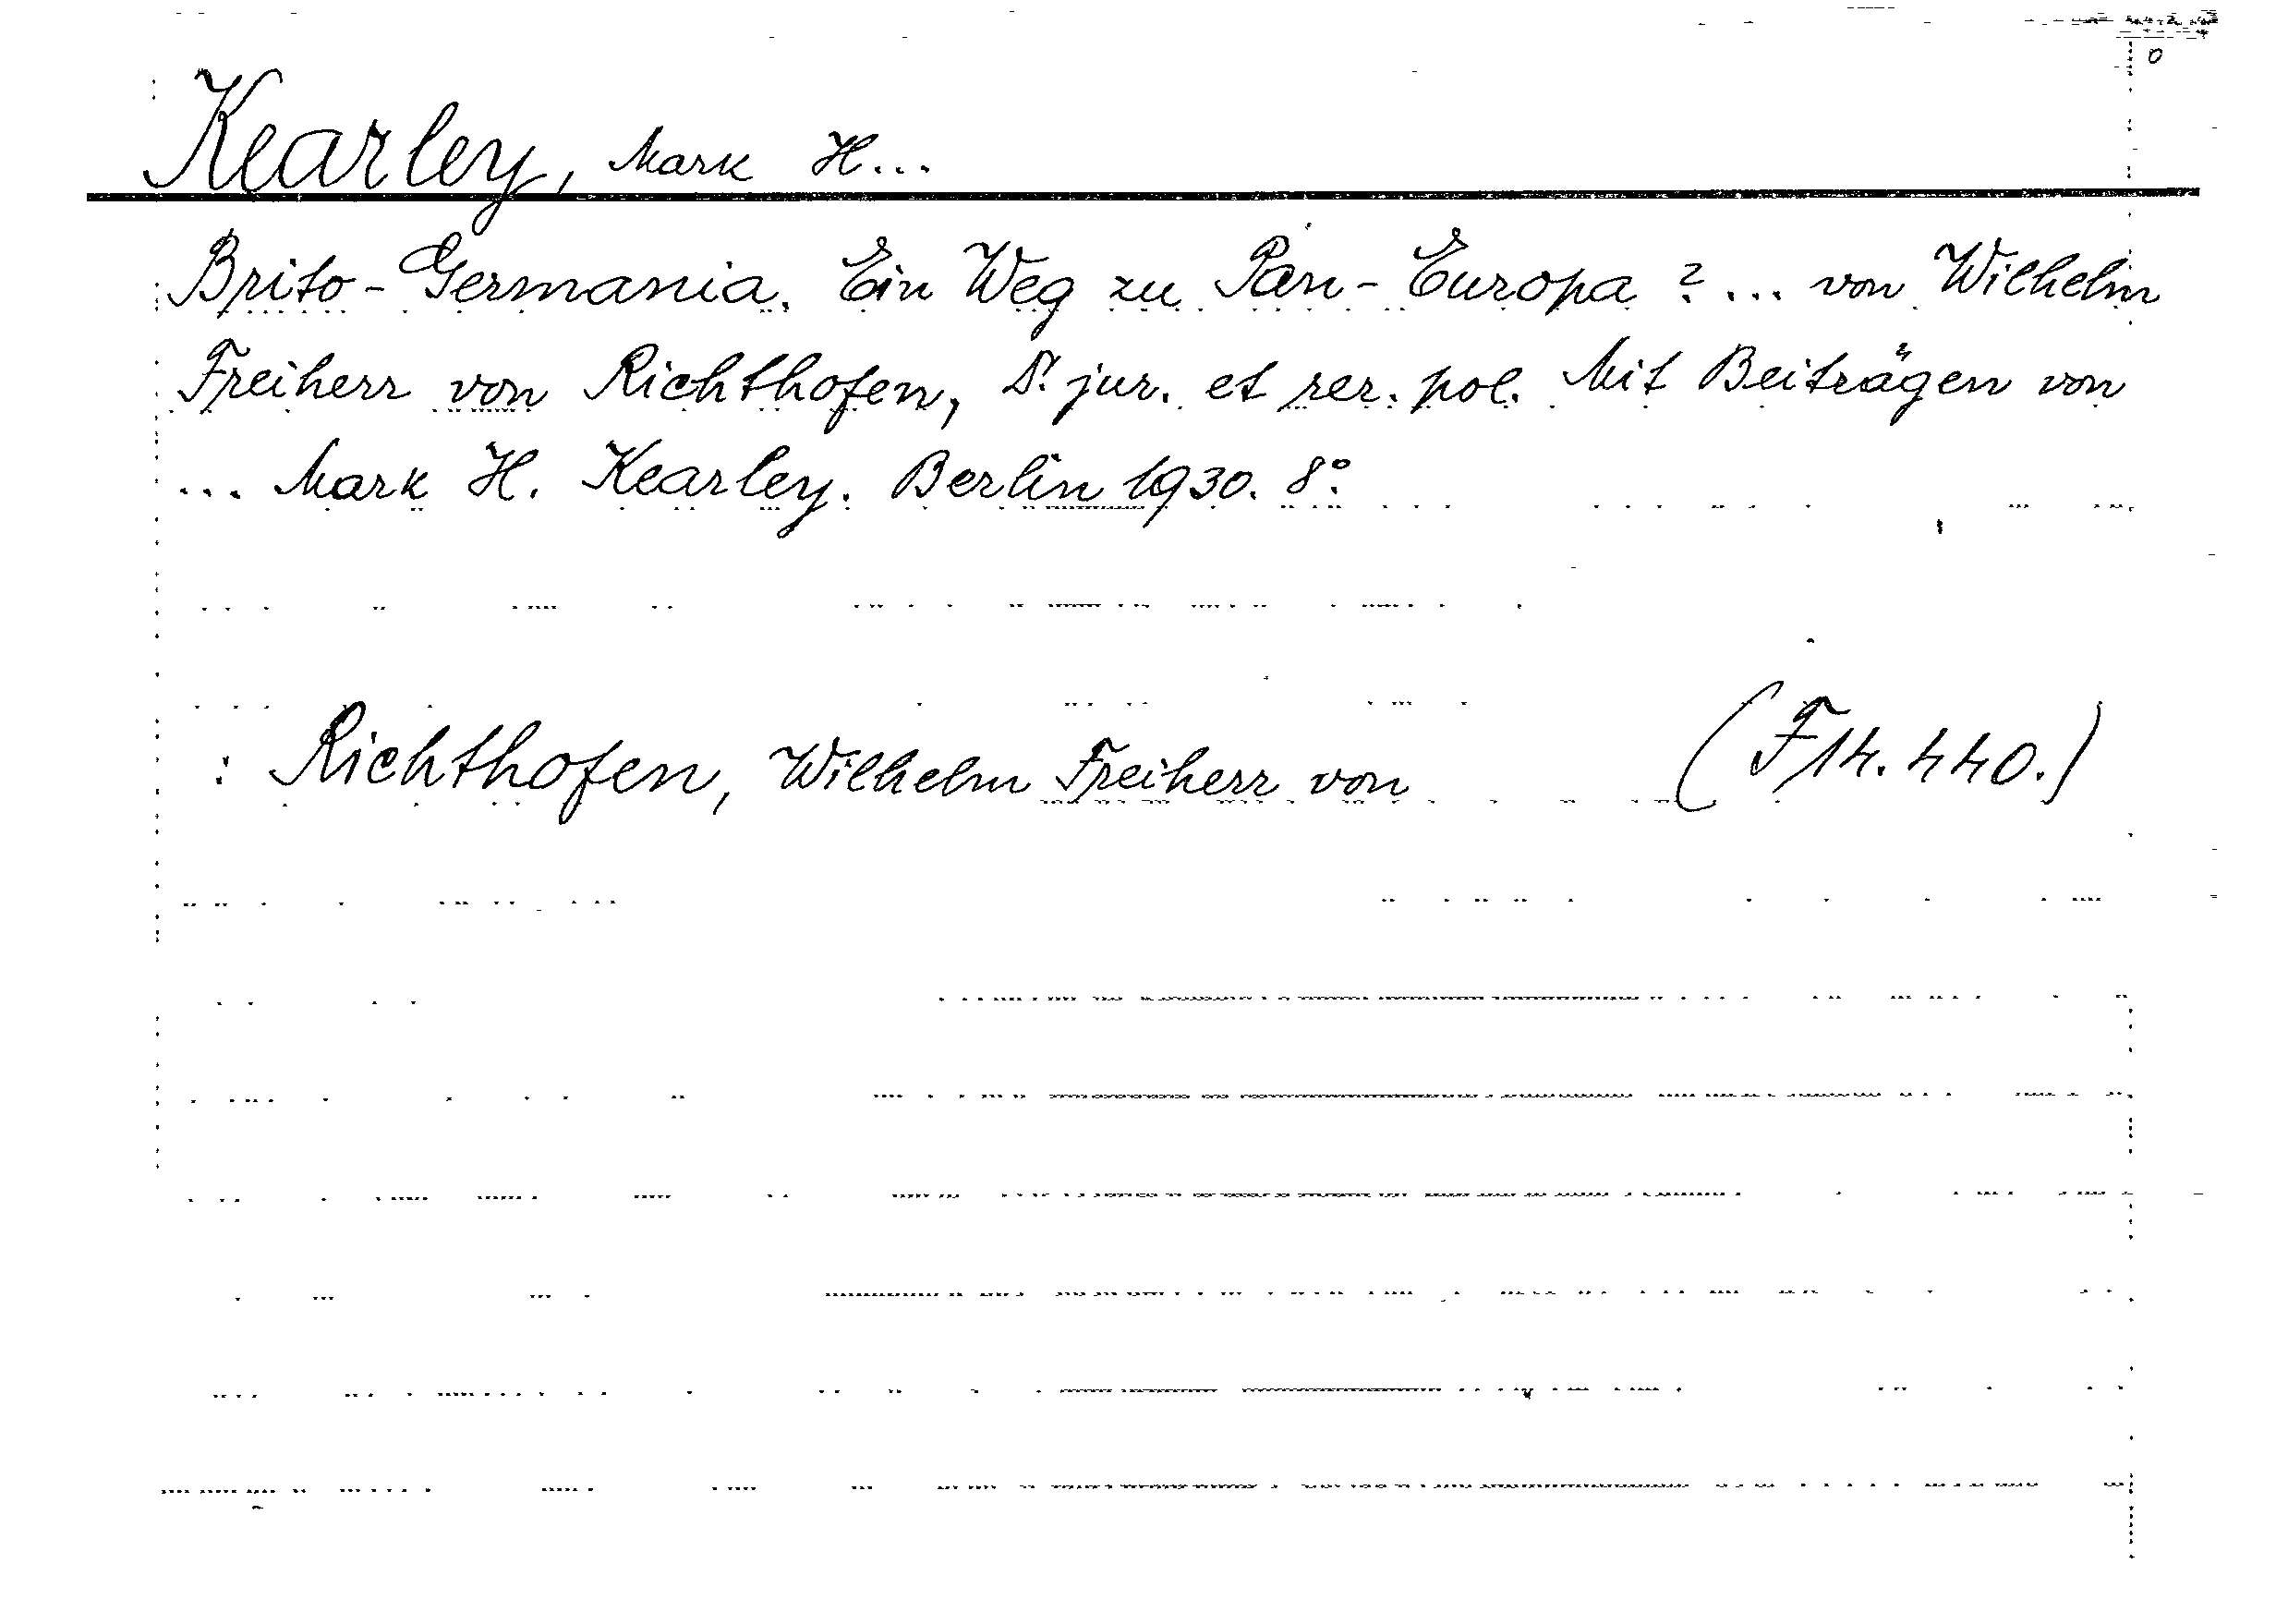 Kearley, Mark H...
Brito-Germania. Ein Weg zu Pan-Europa ? ... von Wilhelm
Freiherr von Richthofen, Dr. jur. et rer. pol. Mit Beiträgen von
... Mark H. Kearley. Berlin 1930. 8°.
: Richthofen, Wilhelm Freiherr von (F14.440.)